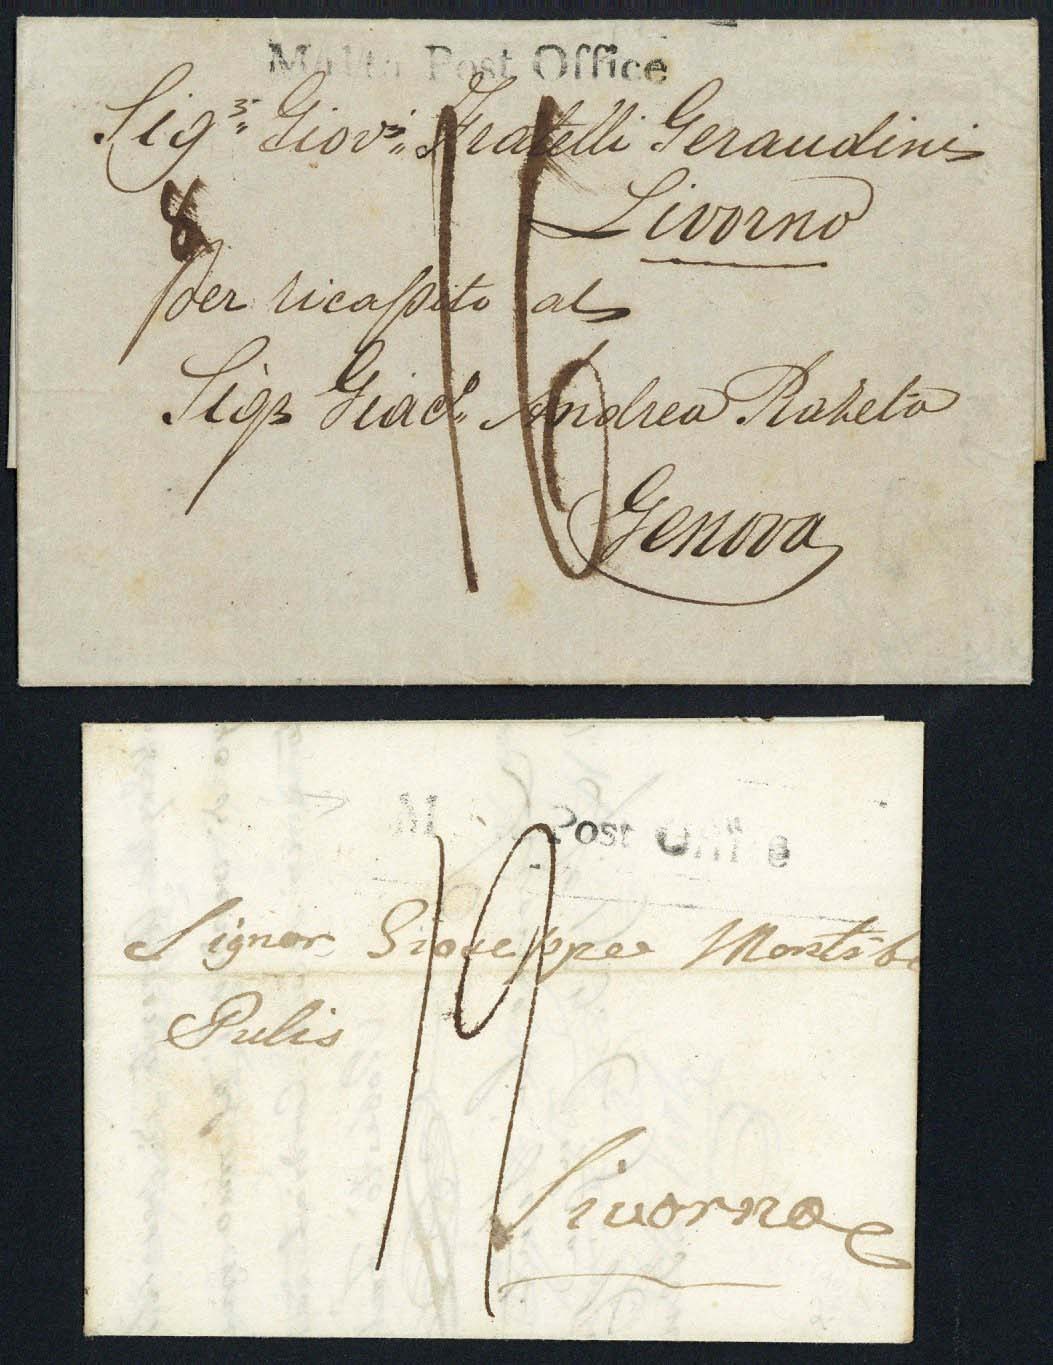 Malta Post Office
Sig.ri Giov.i Fratelli Geraudini
Livorno
8
per ricapito al
16
Sigr Giac.o Andrea Razeto
Genova
M Post Office
19
Signor Giuseppe
Pulis
Livorno